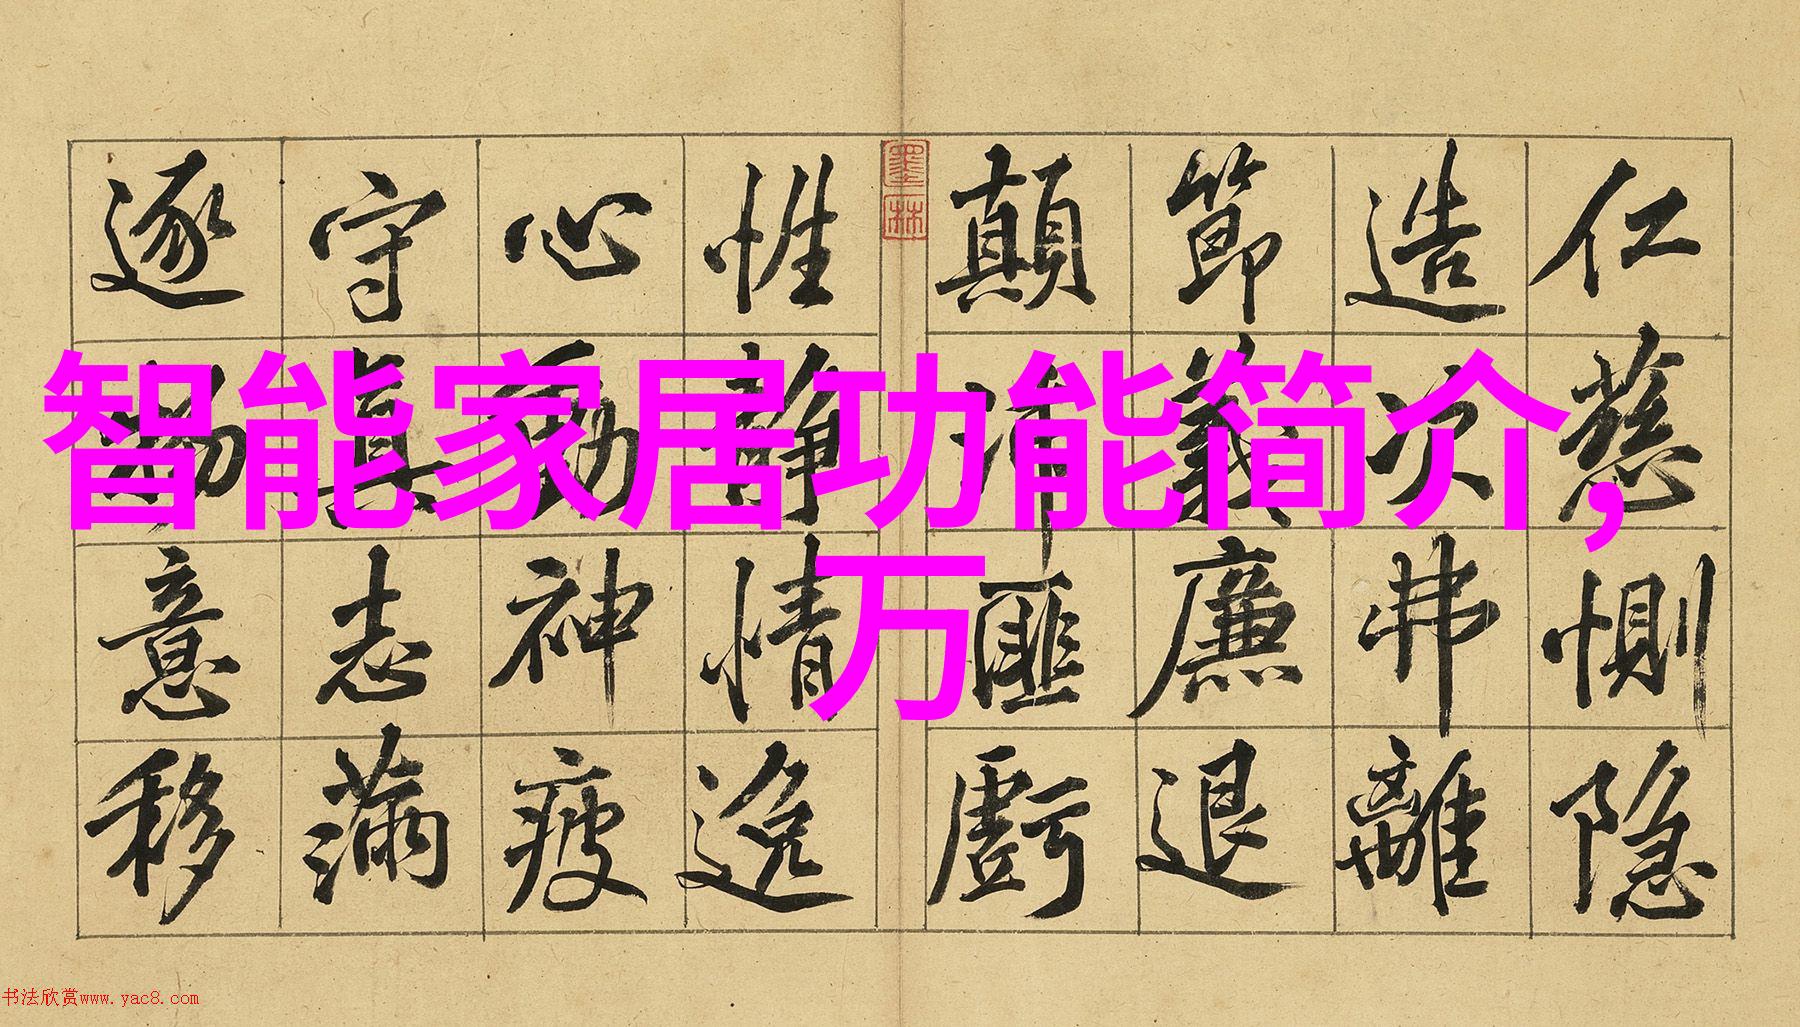 仁慈惻隐
造次弗離
節義廉退
顛沛匪虧
墨林
性静情逸
心動神疲
守真志滿
逐物意移
智能家居功能简介,
万
书法欣赏www.yac8.com